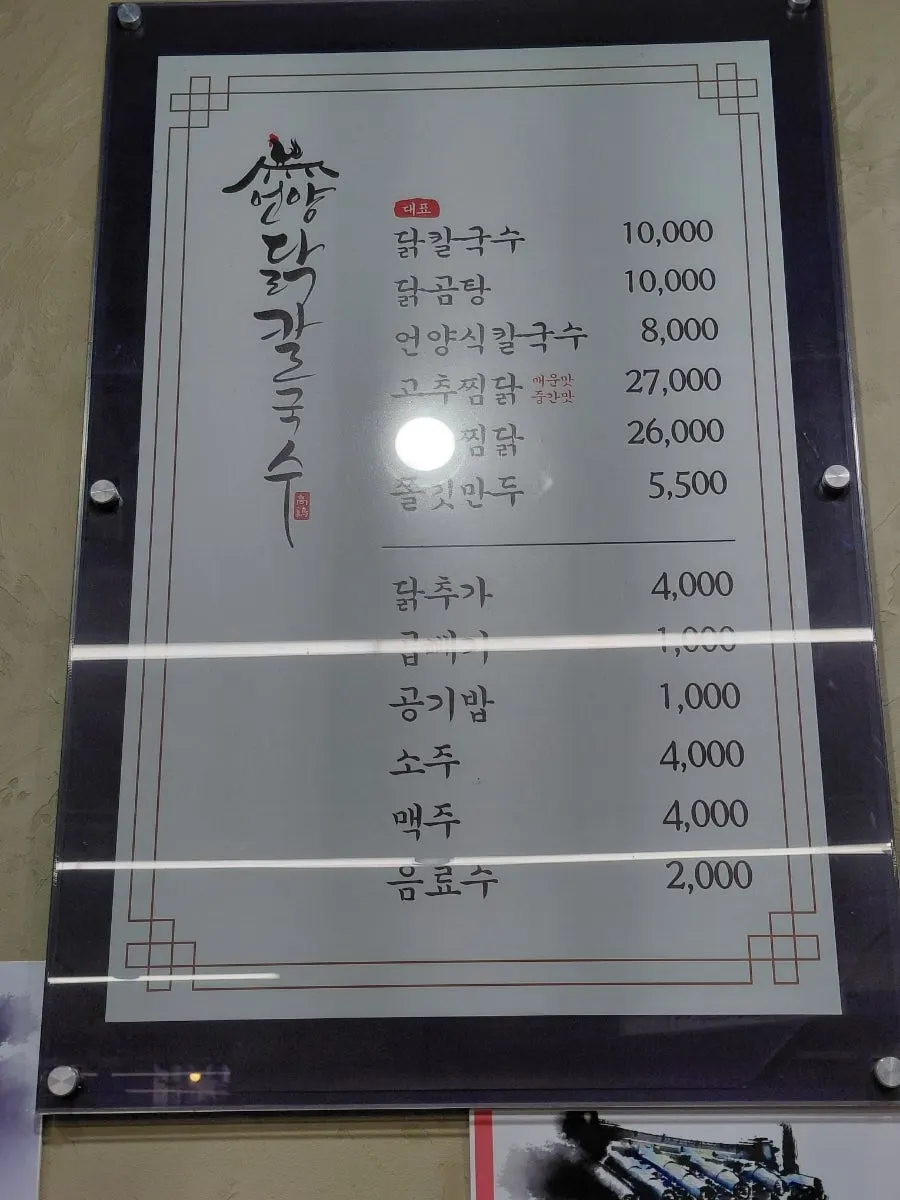 언양
닭칼국수
대표
닭칼국수 10,000
닭곰탕 10,000
언양식칼국수 8,000
고추찜닭 매운맛 27,000
중간맛
찜닭 26,000
쫄깃만두 5,500
닭추가 4,000
곱빼기 1,000
공기밥 1,000
소주 4,000
맥주 4,000
음료수 2,000